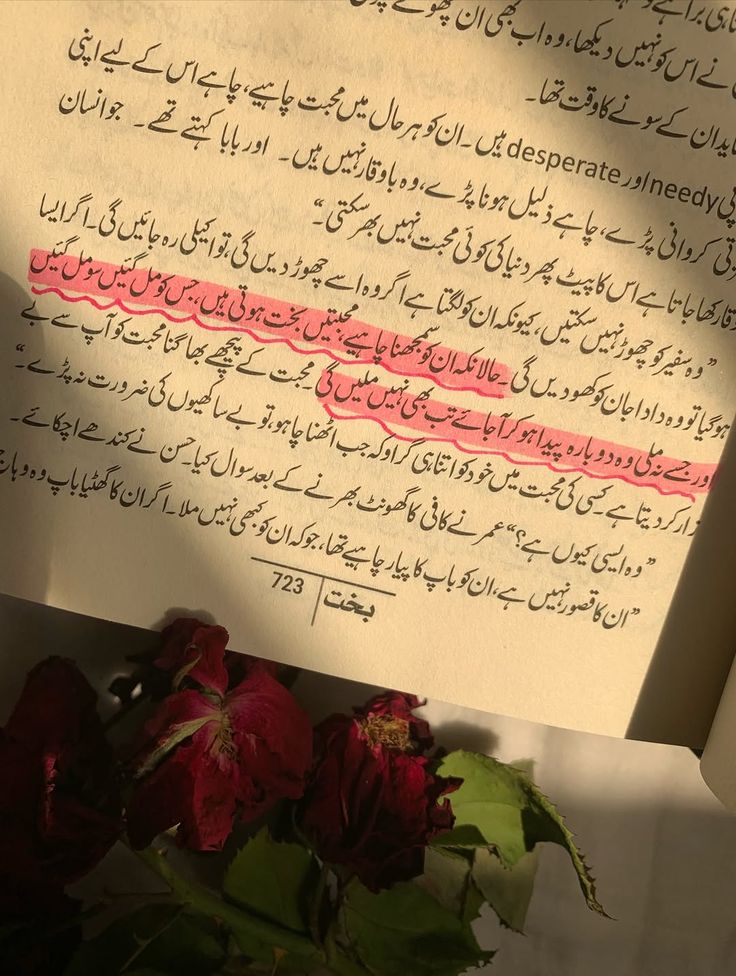 ناہی برا ہے و
نے اس کو نہیں دیکھا، وہ اب بھی ان پھولے
شاید ان کے سونے کا وقت تھا۔
needy اور desperate ہیں۔ ان کو ہر حال میں محبت چاہیے، چاہے اس کے لیے اپنی
کروانی پڑے، چاہے ذلیل ہونا پڑے، وہ باوقار نہیں ہیں۔ اور بابا کہتے تھے۔ جو انسان
رکھا جاتا ہے اس کا پیٹ پھر دنیا کی کوئی محبت نہیں بھر سکتی۔“
”وہ سفیر کو چھوڑ نہیں سکتیں، کیونکہ ان کو لگتا ہے اگر وہ اسے چھوڑ دیں گی، تو اکیلی رہ جائیں گی۔ اگر ایسا
ہو گیا تو وہ دادا جان کو کھو دیں گی۔ حالانکہ ان کو سمجھنا چاہیے، محبتیں بخت ہوتی ہیں، جس کو مل گئیں سو مل گئیں
اور جسے نہ ملی وہ دوبارہ پیدا ہو کر آ جائے تب بھی نہیں ملیں گی۔ محبت کے پیچھے بھاگنا محبت کو آپ سے بے
زار کر دیتا ہے۔ کسی کی محبت میں خود کو اتنا ہی گراو کہ جب اٹھنا چاہو، تو بے ساکھیوں کی ضرورت نہ پڑے۔“
”وہ ایسی کیوں ہے؟“ عمر نے کافی کا گھونٹ بھرنے کے بعد سوال کیا۔ حسن نے کندھے اچکائے۔
”ان کا قصور نہیں ہے، ان کو باپ کا پیار چاہیے تھا، جو کہ ان کو کبھی نہیں ملا۔ اگر ان کا گھٹیا باپ وہ وہاں
بخت 723